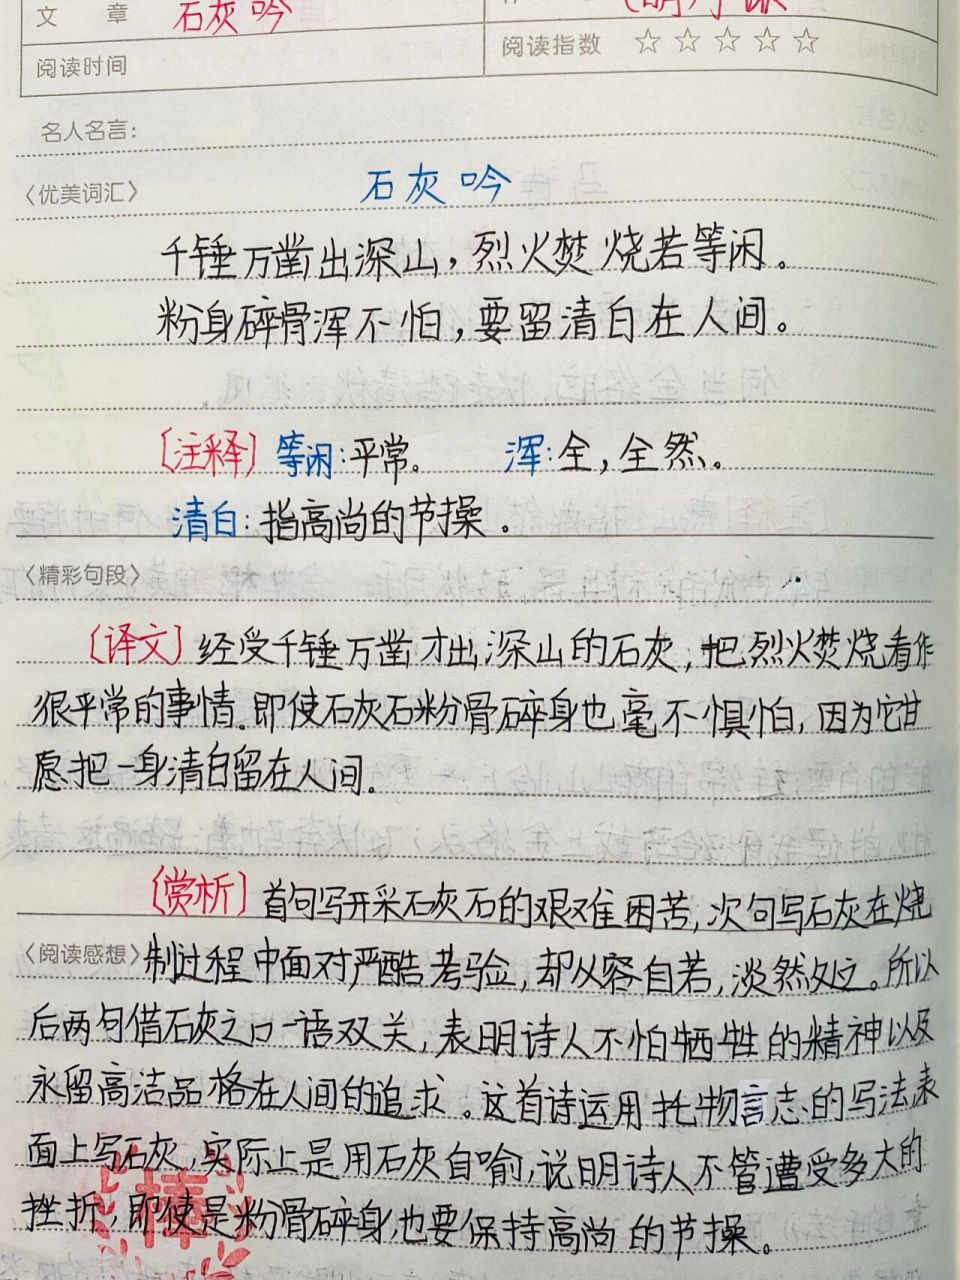 文 章 石灰吟 (明)于谦
阅读时间 阅读指数 ☆☆☆☆☆
名人名言：
〈优美词汇〉 石灰吟
千锤万凿出深山，烈火焚烧若等闲。
粉身碎骨浑不怕，要留清白在人间。
〔注释〕等闲：平常。 浑：全，全然。
清白：指高尚的节操。
〈精彩句段〉
〔译文〕经受千锤万凿才出深山的石灰，把烈火焚烧看作
很平常的事情。即使石灰石粉骨碎身也毫不惧怕，因为它甘
愿把一身清白留在人间。
〔赏析〕首句写开采石灰石的艰难困苦，次句写石灰在烧
〈阅读感想〉制过程中面对严酷考验，却从容自若，淡然处之。所以
后两句借石灰之口一语双关，表明诗人不怕牺牲的精神以及
永留高洁品格在人间的追求。这首诗运用托物言志的写法表
面上写石灰，实际上是用石灰自喻，说明诗人不管遭受多大的
挫折，即使是粉骨碎身，也要保持高尚的节操。
棒